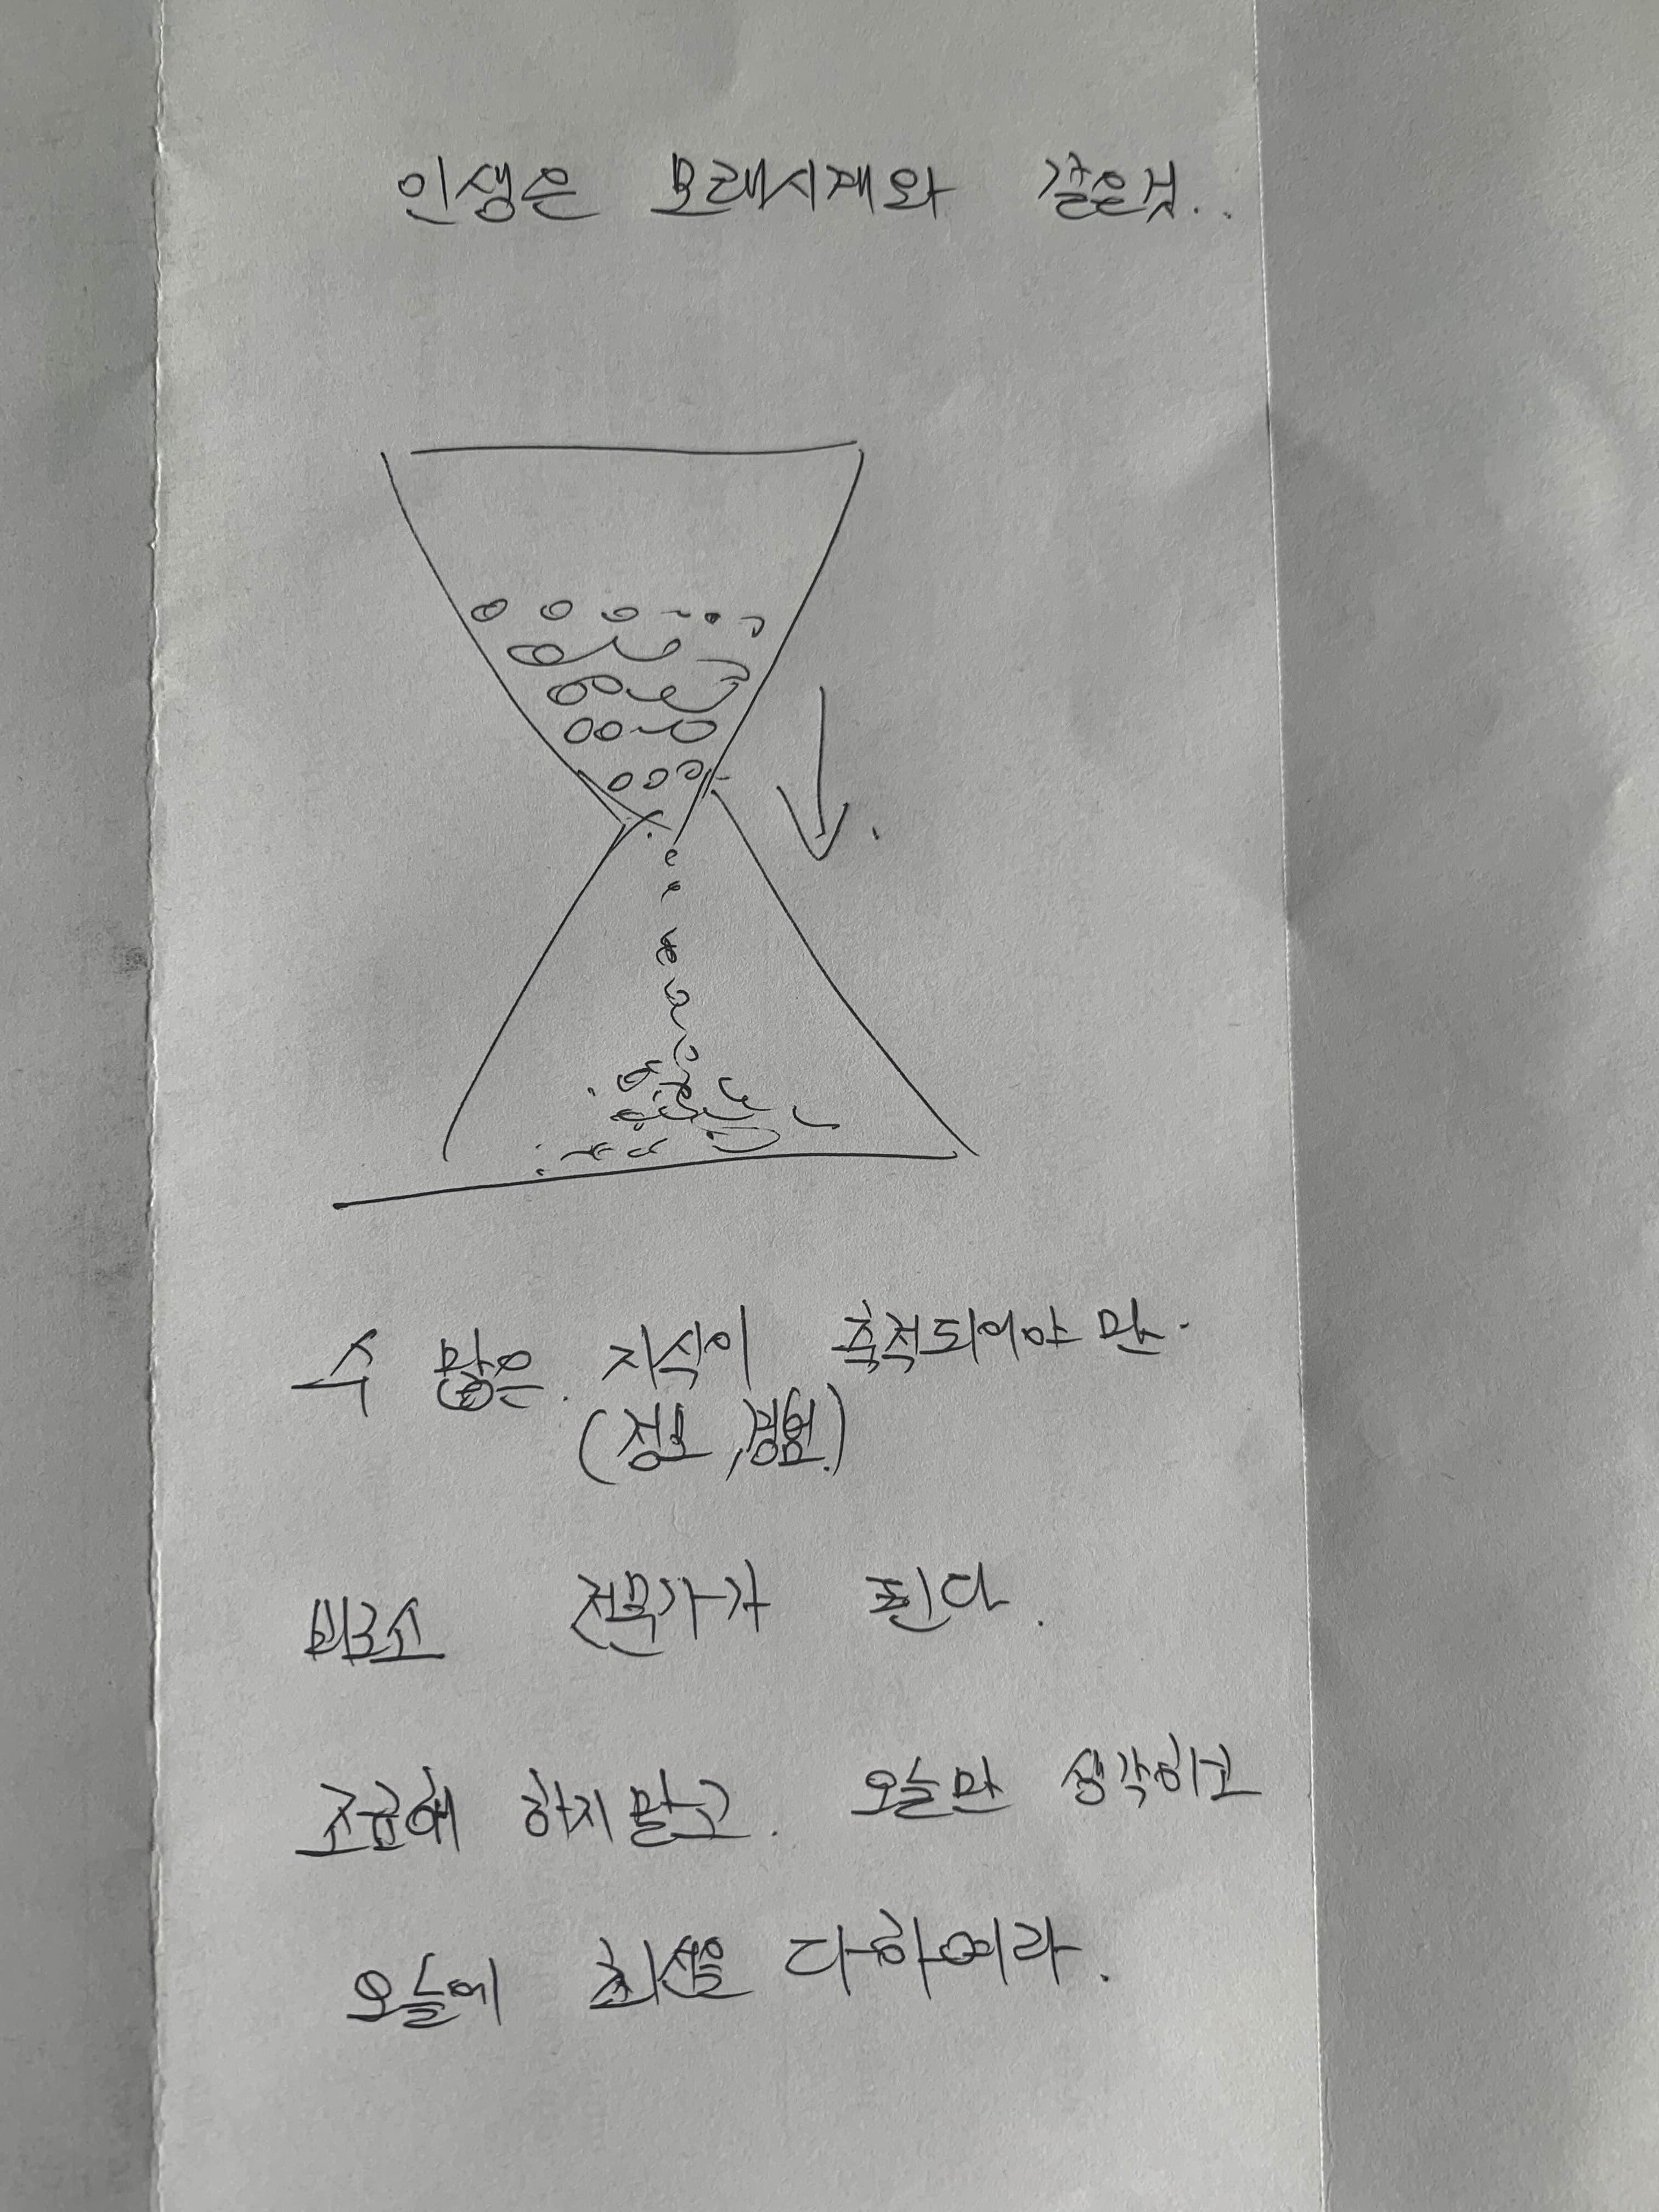 인생은 모래시계와 같은것..
수 많은 지식이 축적되어야만.
(정보, 경험)
비로소 전문가가 된다.
조급해 하지말고. 오늘만 생각하고
오늘에 최선을 다하여라.